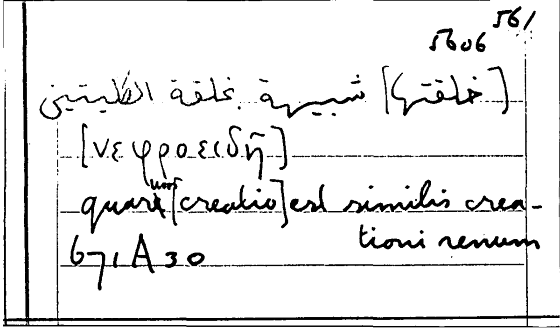 561
5606
[خلقتها] شبيهة بخلقة الكليتين
[νεφροειδῆ]
quarum [creatio] est similis crea-
tioni renum
671 A 30